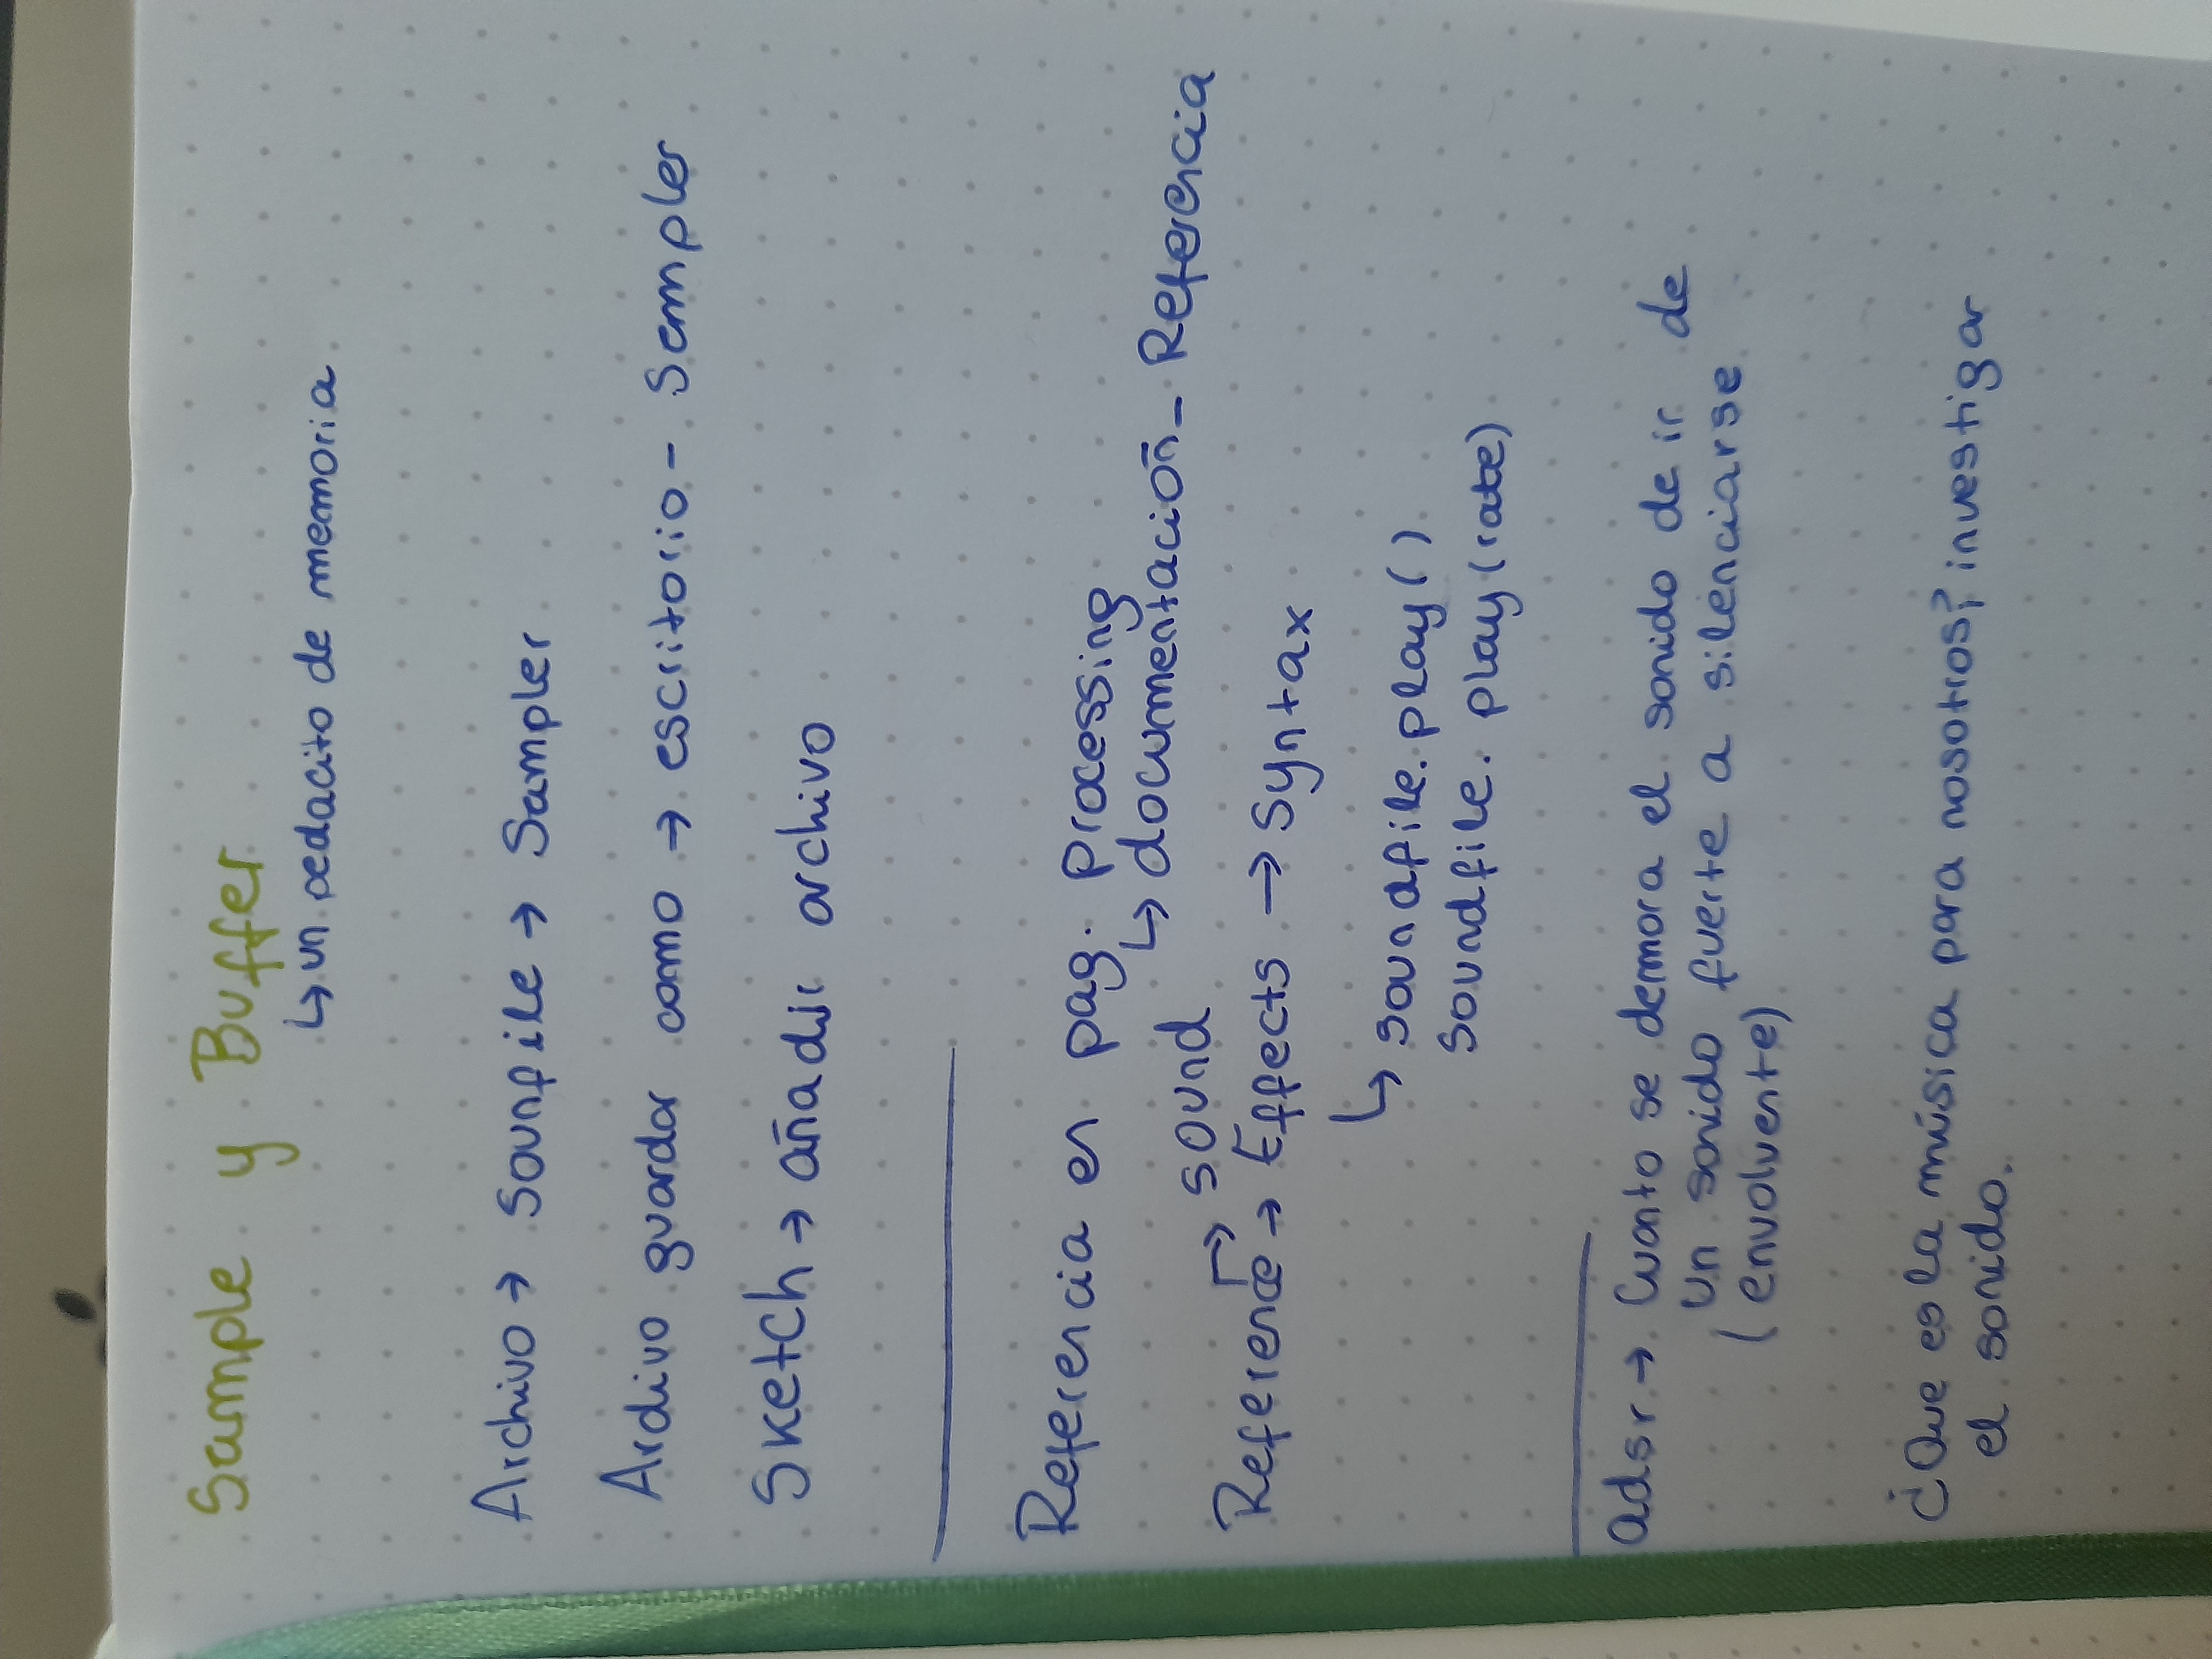 Sample y Buffer
↳ un pedacito de memoria
Archivo → Sounfile → Sampler
Ardivo guardar como → escritorio - Sampler
Sketch → añadir archivo
Referencia en pag. processing
↳ documentación - Referencia
↱ sound
Reference → Effects → Syntax
↳ soundfile.play()
soundfile.play(rate)
adsr → Cuanto se demora el sonido de ir de
un sonido fuerte a silenciarse
(envolvente)
¿Que es la música para nosotros? investigar
el sonido.